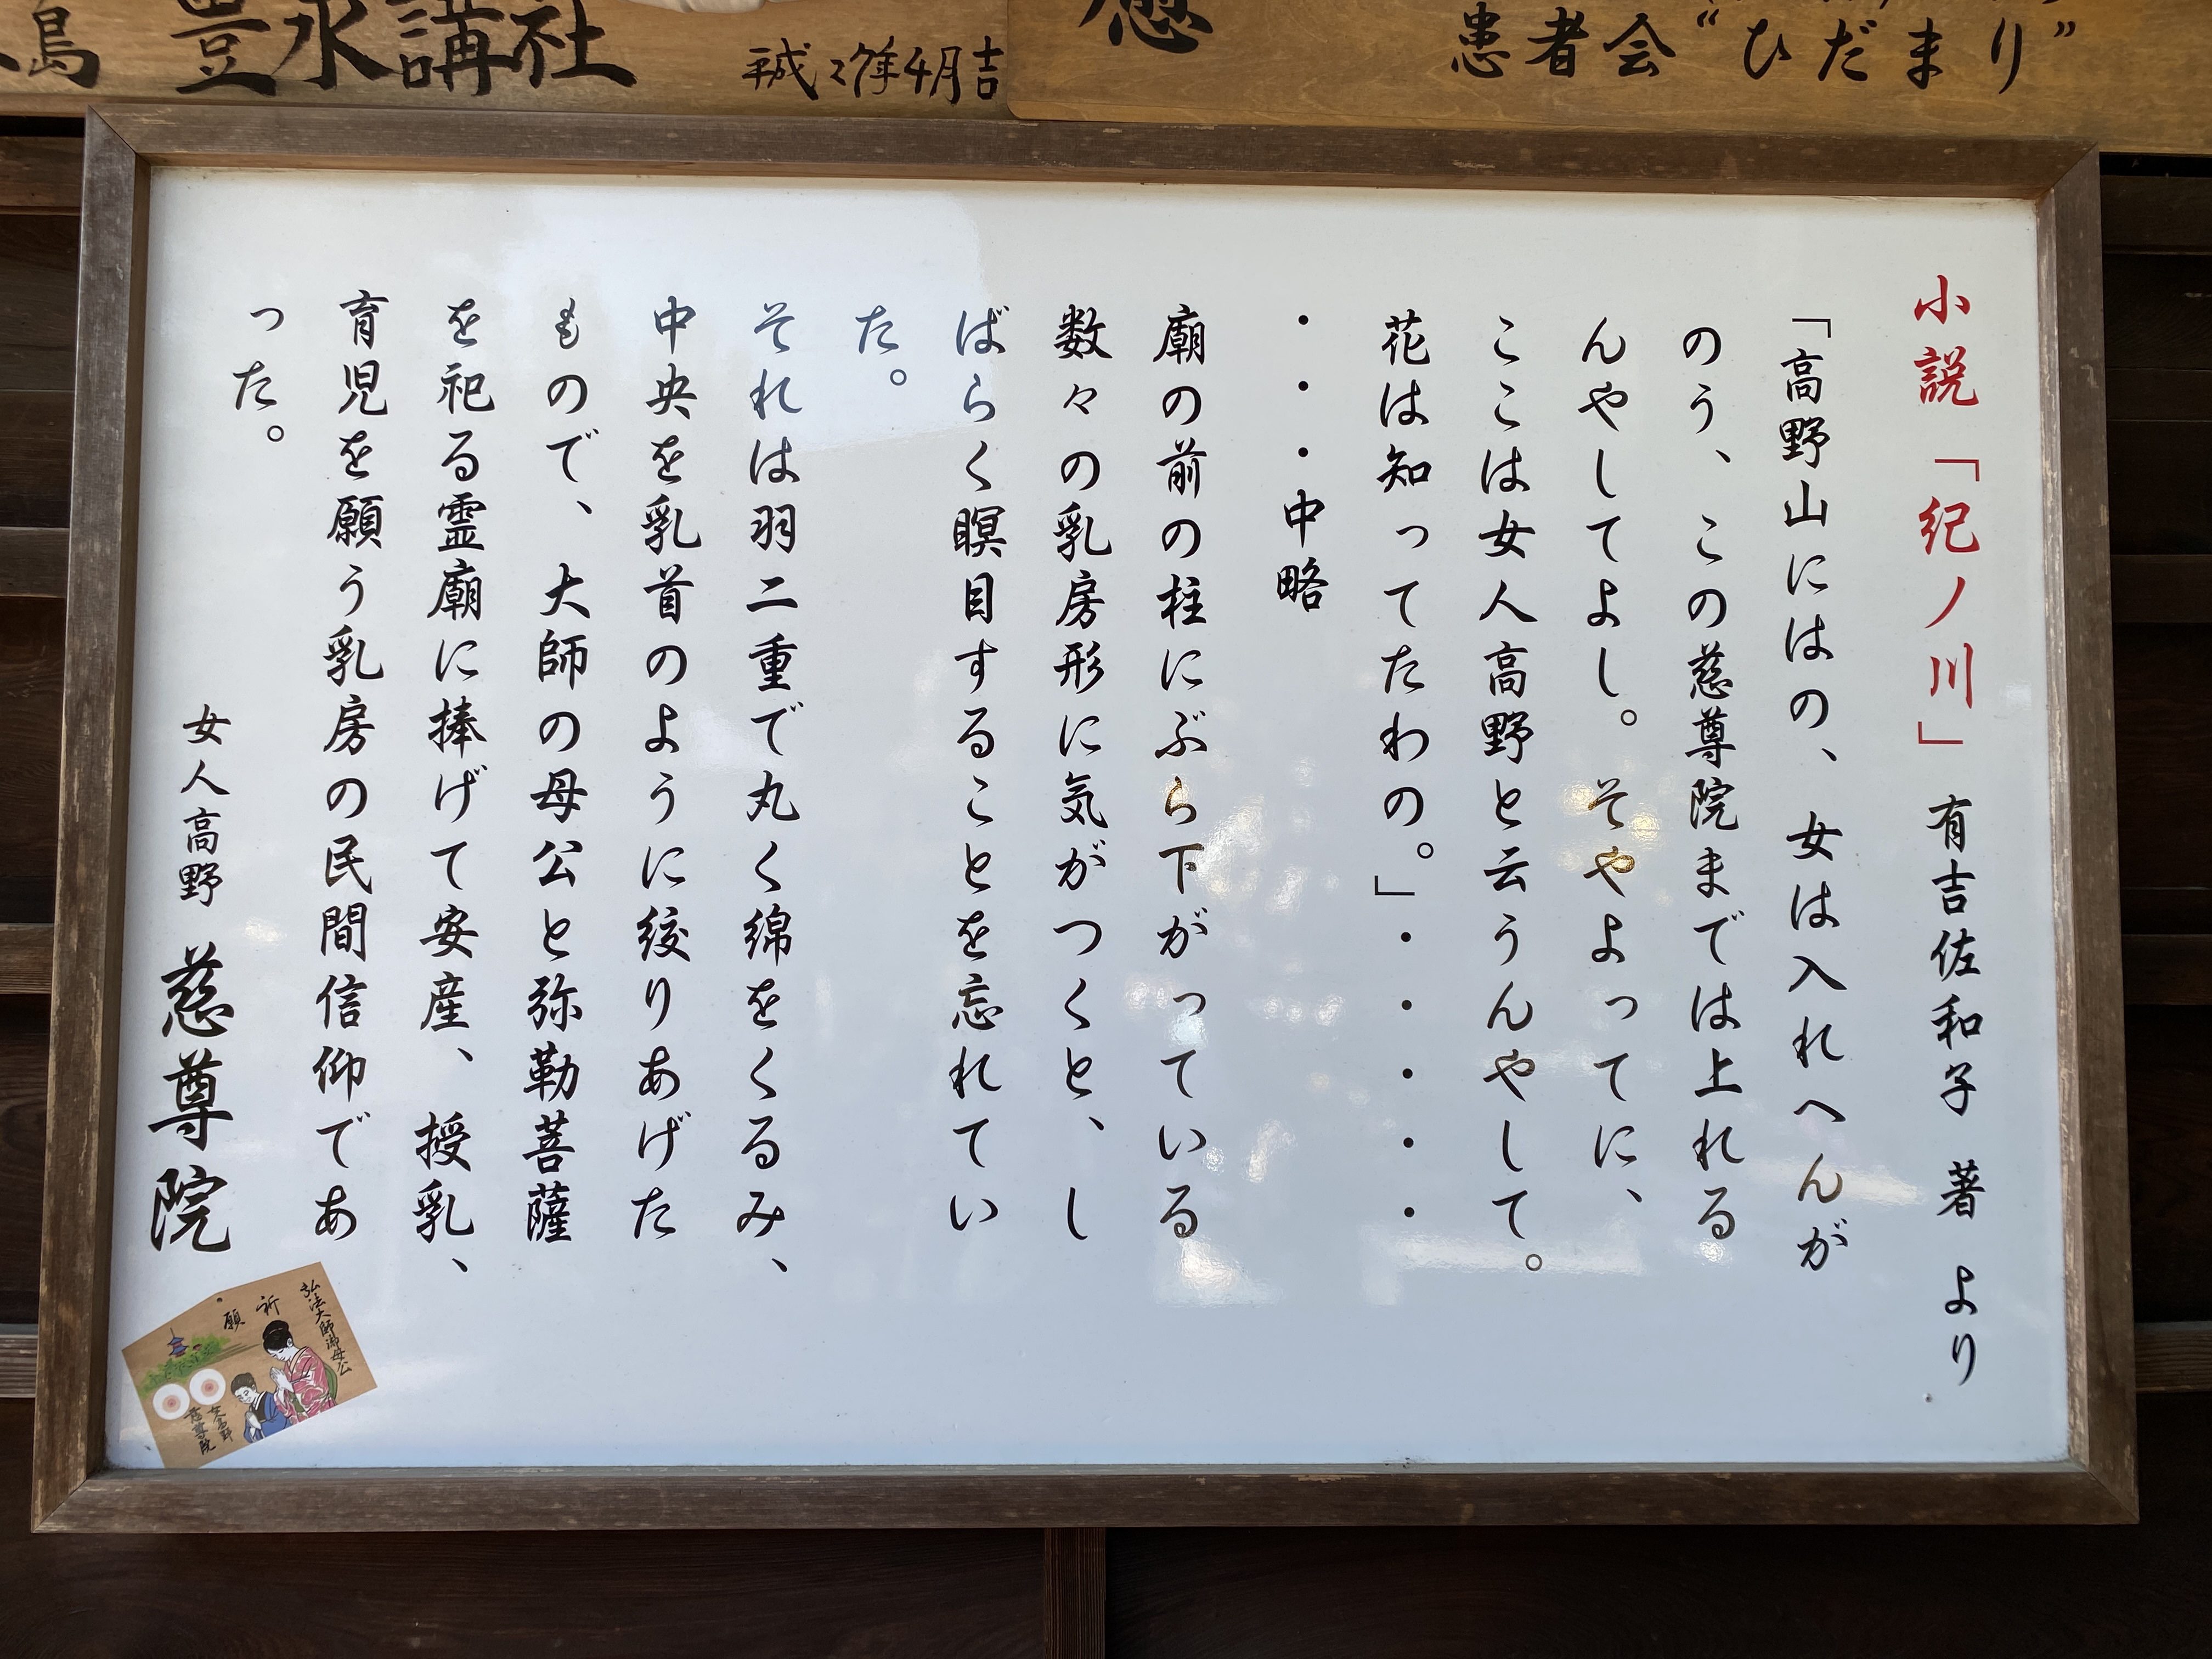 島 豊水講社
平成２７年４月吉
患者会“ひだまり”
小説「紀ノ川」有吉佐和子 著 より
「高野山にはの、女は入れへんが
のう、この慈尊院までは上れる
んやしてよし。そやよってに、
ここは女人高野と云うんやして。
花は知ってたわの。」・・・・・
・・・中略
廟の前の柱にぶら下がっている
数々の乳房形に気がつくと、し
ばらく瞑目することを忘れてい
た。
それは羽二重で丸く綿をくるみ、
中央を乳首のように絞りあげた
もので、大師の母公と弥勒菩薩
を祀る霊廟に捧げて安産、授乳、
育児を願う乳房の民間信仰であ
った。
女人高野 慈尊院
弘法大師御母公
祈願
女人高野
慈尊院